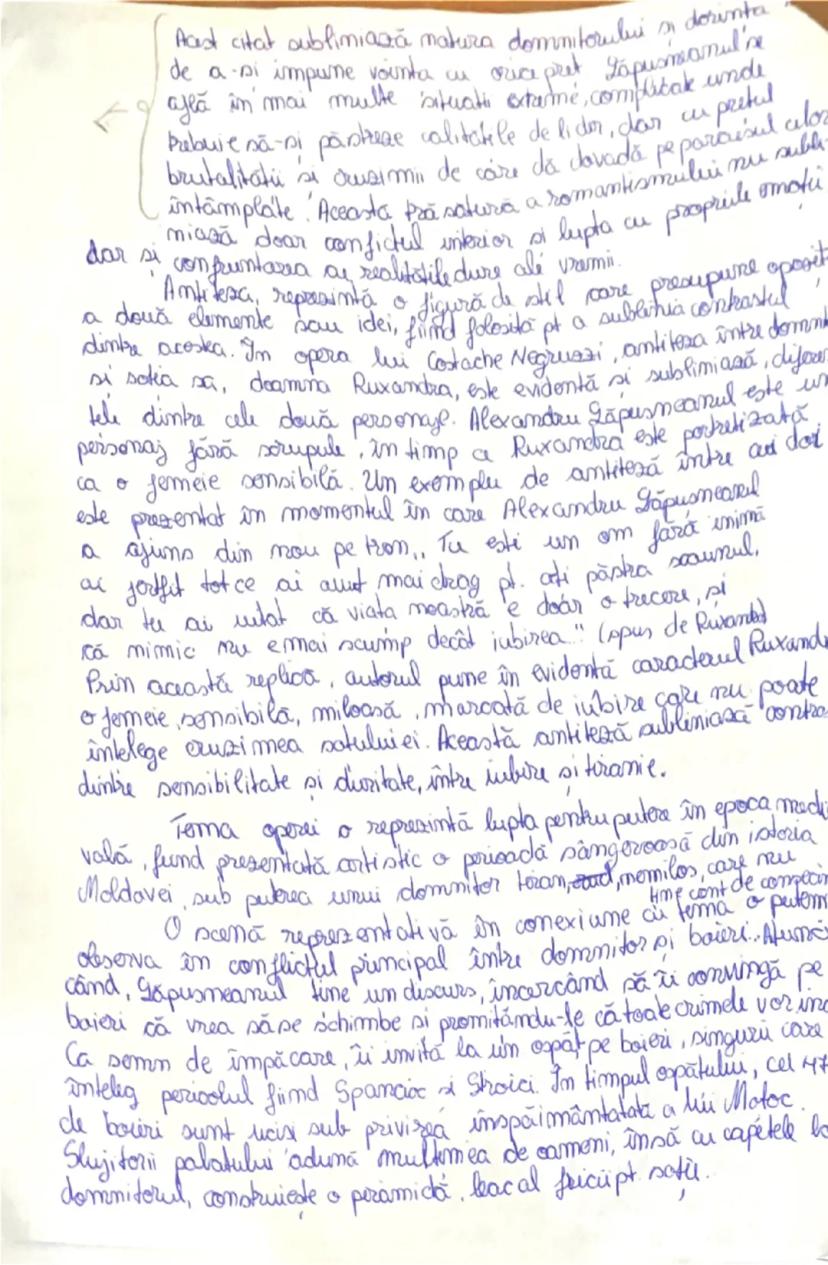 Acest citat subliniază natura domnitorului și dorința
de a-și impune voința cu orice preț Lăpușneanul se
află în mai multe situații extreme, complicate unde
trebuie să-și păstreze calitățile de lider, dar cu prețul
brutalității și cruzimii de care dă dovadă pe parcursul celor
întâmplate. Această trăsătură a romantismului nu subli-
niază doar conflictul interior și lupta cu propriile emoții
dar și confruntarea cu realitățile dure ale vremii.
Antiteza, reprezintă o figură de stil care presupune
a două elemente sau idei, fiind folosită pt a sublinia contrastul
dintre acestea. În opera lui Costache Negruzzi, antiteza între
și soția sa, doamna Ruxandra, este evidentă și subliniază,
tele dintre cele două personaje. Alexandru Lăpușneanul este un
personaj fără scrupule, în timp ce Ruxandra este portretizată
ca o femeie sensibilă. Un exemplu de antiteză între cei doi
este prezentat în momentul în care Alexandru Lăpușneanul
a ajuns din nou pe tron,, Tu ești un om fără inimă
ai jertfit tot ce ai avut mai drag pt. ați păstra scaunul,
dar tu ai uitat că viața noastră e doar o trecere, și
că nimic nu e mai scump decât iubirea." (spus de Ruxanda)
Prin această replică, autorul pune în evidență caracterul
o femeie sensibilă, miloasă, marcată de iubire care nu poate
înțelege cruzimea soțului ei. Această antiteză subliniază
dintre sensibilitate și duritate, între iubire și tiranie.
Tema operei o reprezintă lupta pentru putere în epoca
vală, fiind prezentată artistic o perioadă sângeroasă din istoria
Moldovei, sub puterea unui domnitor tiran, nemilos, care nu
tine cont de
O scenă reprezentativă în conexiune cu tema o putem
observa în conflictul principal între domnitor și boieri. Atunci
când, Lăpușneanul ține un discurs, încercând să îi convingă pe
boieri că vrea să se schimbe și promitându-le că toate crimele vor
Ca semn de împăcare, îi invită la un ospăț pe boieri, singurii care
înțeleg pericolul fiind Spancioc și Stroici. În timpul ospățului, cei 47
de boieri sunt uciși sub privirea înspăimântătată a lui Moțoc.
Slujitorii palatului adună mulțimea de oameni, însă cu capetele
domnitorul, construiește o piramidă, leac al fricii pt soție.